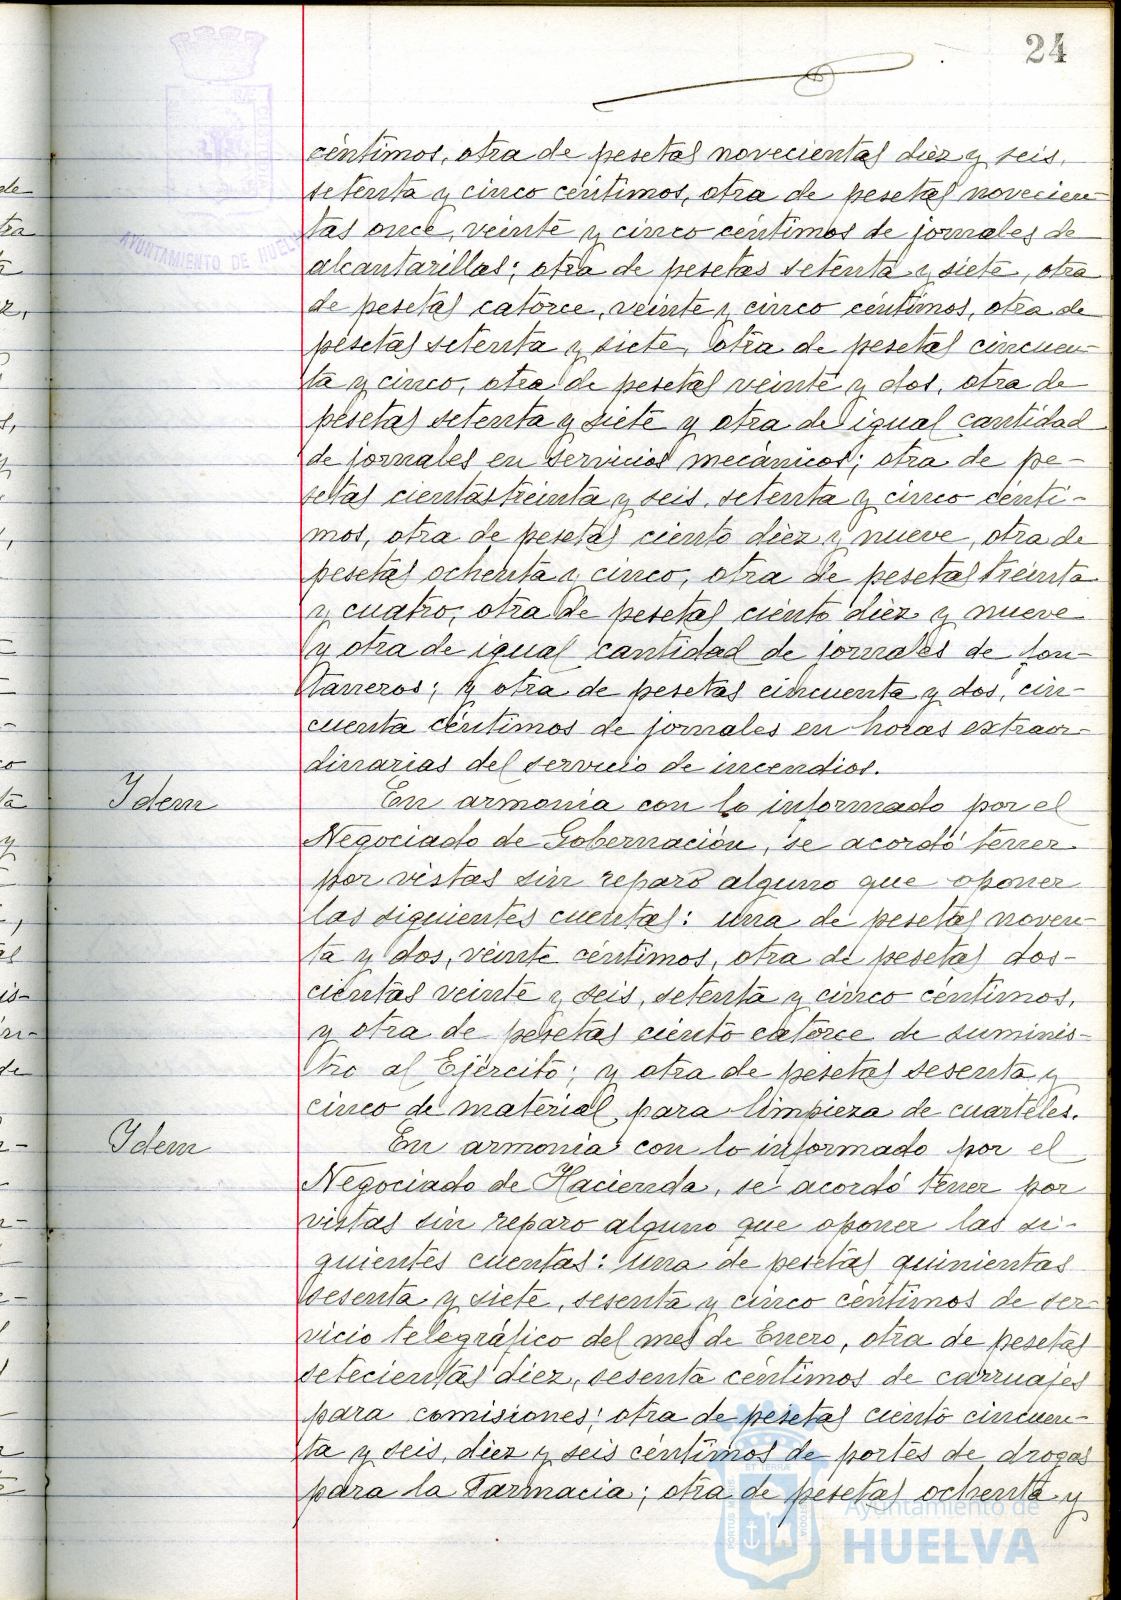 24
AYUNTAMIENTO DE HUELVA
céntimos, otra de pesetas novecientas diez y seis,
setenta y cinco céntimos, otra de pesetas novecien-
tas once, veinte y cinco céntimos de jornales de
alcantarillas; otra de pesetas setenta y siete, otra
de pesetas catorce, veinte y cinco céntimos, otra de
pesetas setenta y siete, otra de pesetas cincuen-
ta y cinco, otra de pesetas veinte y dos, otra de
pesetas setenta y siete y otra de igual cantidad
de jornales en servicios mecánicos; otra de pe-
setas cientas treinta y seis, setenta y cinco cénti-
mos, otra de pesetas ciento diez y nueve, otra de
pesetas ochenta y cinco, otra de pesetas treinta
y cuatro, otra de pesetas ciento diez y nueve
y otra de igual cantidad de jornales de fon-
taneros; y otra de pesetas cincuenta y dos, cin-
cuenta céntimos de jornales en horas extraor-
dinarias del servicio de incendios.
Idem
En armonía con lo informado por el
Negociado de Gobernación, se acordó tener
por vistas sin reparo alguno que oponer
las siguientes cuentas: una de pesetas noven-
ta y dos, veinte céntimos, otra de pesetas dos-
cientas veinte y seis, setenta y cinco céntimos,
y otra de pesetas ciento catorce de suminis-
tro al Ejército; y otra de pesetas sesenta y
cinco de material para limpieza de cuarteles.
Idem
En armonía con lo informado por el
Negociado de Hacienda, se acordó tener por
vistas sin reparo alguno que oponer las si-
guientes cuentas: una de pesetas quinientas
sesenta y siete, sesenta y cinco céntimos de ser-
vicio telegráfico del mes de Enero, otra de pesetas
setecientas diez, sesenta céntimos de carruajes
para comisiones; otra de pesetas ciento cincuen-
ta y seis, diez y seis céntimos de portes de drogas
para la Farmacia; otra de pesetas ochenta y
Ayuntamiento de
HUELVA